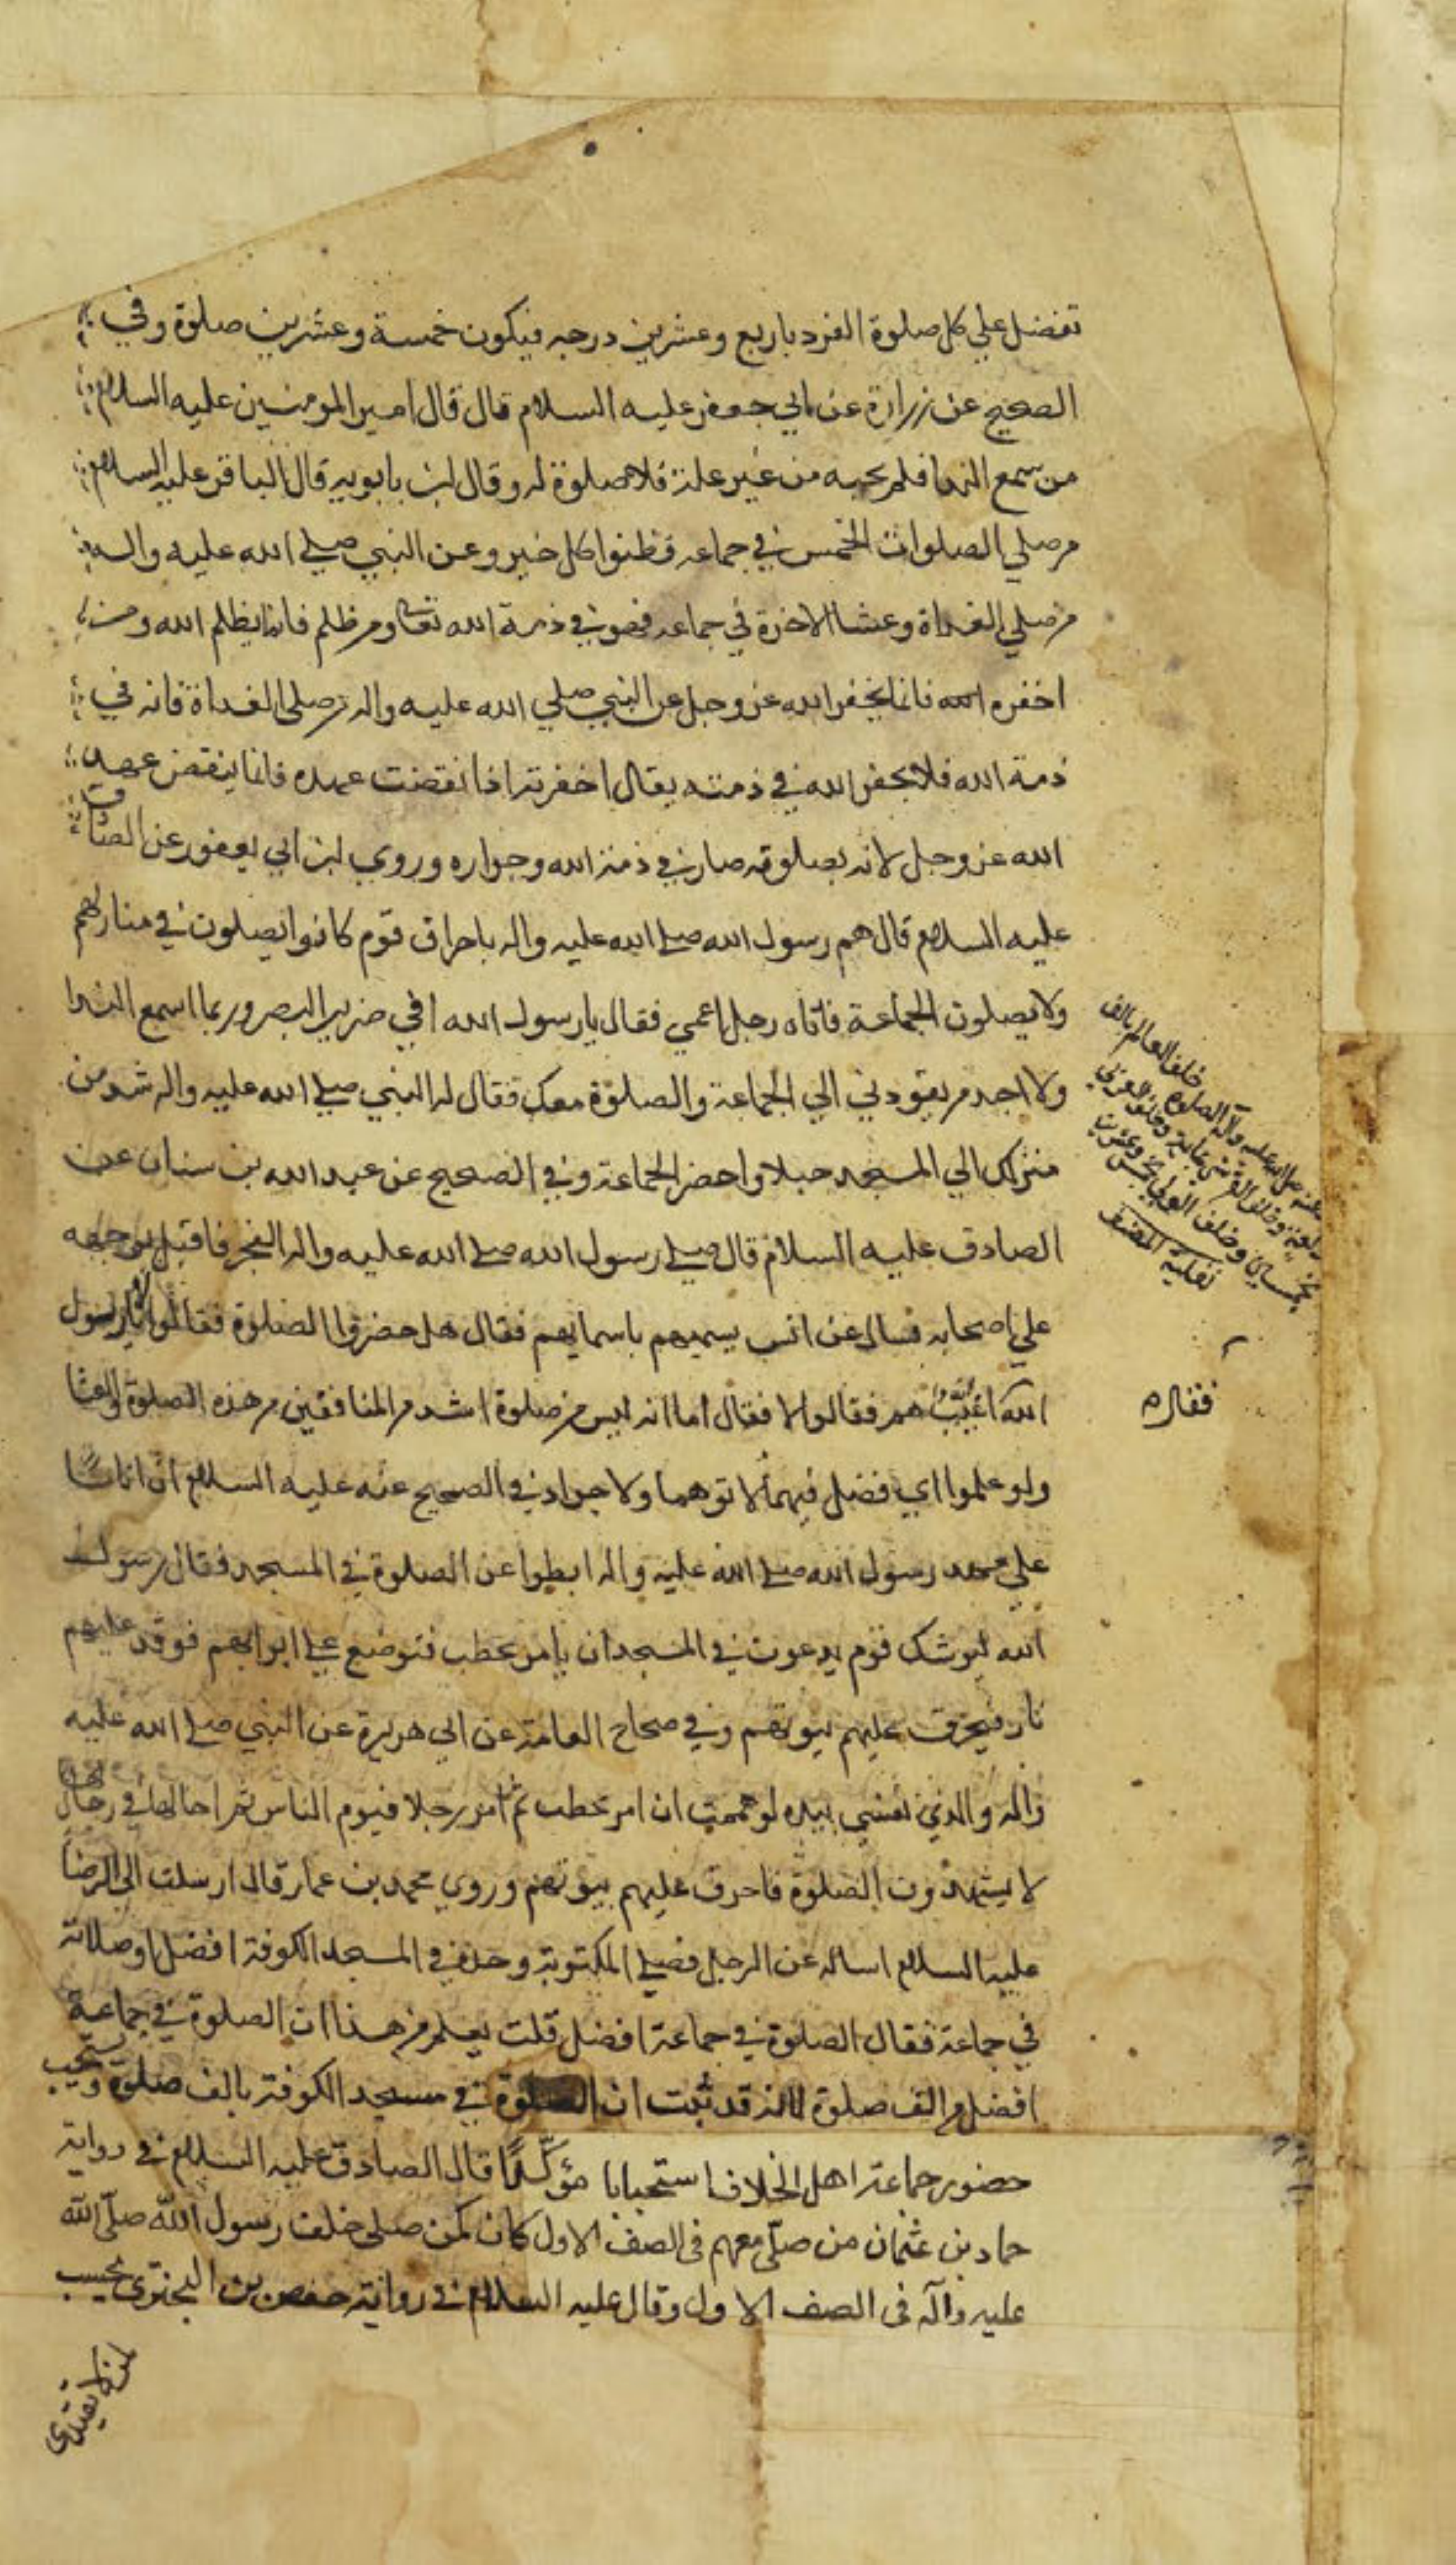 تفضل علي كل صلوة الفرد باربع وعشرين درجه فيكون خمسة وعشرين صلوة وفي
الصحيح عن زرارة عن ابي جعفر عليه السلام قال قال امير المومنين عليه السلام
من سمع الندا فلم يجبه من غير علة فلا صلوة له وقال ابن بابويه قال الباقر عليه السلام
من صلي الصلوات الخمس في جماعه فظنوا كل خير وعن النبي صلي الله عليه واله
من صلي الغداة وعشا الاخرة في جماعه فهو في ذمة الله تعالي ومن ظلمه فانما يظلم الله ومن
اخفره الله فانما يخفر الله عز وجل عن النبي صلي الله عليه واله من صلي الغداة فانه في
ذمة الله فلا يخفرن الله في ذمته يقال اخفرته اذا نقضت عهده فانما ينقض عهد
الله عز وجل لانه بصلوته صار في ذمة الله وجواره وروي ابن ابي يعفور عن الصادق
عليه السلام قال هم رسول الله صلي الله عليه واله باحراق قوم كانوا يصلون في منازلهم
ولا يصلون الجماعة فاتاه رجل اعمي فقال يا رسول الله اني ضرير البصر وربما اسمع الندا
ولا اجد من يقودني الي الجماعة والصلوة معك فقال له النبي صلي الله عليه واله شد من
منزلك الي المسجد حبلا واحضر الجماعة وفي الصحيح عن عبد الله بن سنان عن
الصادق عليه السلام قال صلي رسول الله صلي الله عليه واله الفجر فاقبل بوجهه
علي اصحابه فسال عن اناس يسميهم باسمايهم فقال هل حضروا الصلوة فقالوا لا يا رسول
الله اغيب هم فقالوا لا فقال اما انه ليس من صلوة اشد من المنافقين من هذه الصلوة والعشا
ولو علموا اي فضل فيهما لاتوهما ولو حبوا وفي الصحيح عنه عليه السلام ان اناسا
علي عهد رسول الله صلي الله عليه واله ابطوا عن الصلوة في المسجد فقال رسول
الله ليوشك قوم يدعون في المسجد ان يامر بحطب فتوضع علي ابوابهم فوقد عليهم
نار فيحرق عليهم بيوتهم وفي صحاح العامة عن ابي هريرة عن النبي صلي الله عليه
واله والذي نفسي بيده لو هممت ان امر بحطب ثم امر رجلا فيوم الناس ثم اخالف رجال
لا يشهدون الصلوة فاحرق عليهم بيوتهم وروي محمد بن عمار قال ارسلت الي الرضا
عليه السلام اساله عن الرجل فصلي المكتوبة وحده في المسجد الكوفة افضل او صلاته
في جماعة فقال الصلوة في جماعة افضل قلت يعلم من هذا ان الصلوة في جماعة
افضل من الف صلوة لانه قد ثبت ان الصلوة في مسجد الكوفة بالف صلوة ويستحب
حضور جماعة اهل الخلاف استحبابا مؤكّدًا قال الصادق عليه السلام في رواية
حماد بن عثمان من صلّى معهم فى الصف الاول كان كمن صلى خلف رسول الله صلّى الله
عليه وآله فى الصف الاول وقال عليه السلام فى رواية حفص بن البخترى يحسب
عنه صلى الله عليه وآله الصلوة خلف العالم بالف
ركعة وخلف القرشي بمائة وخلف العربي
خمسون وخلف المولى خمس وعشرون